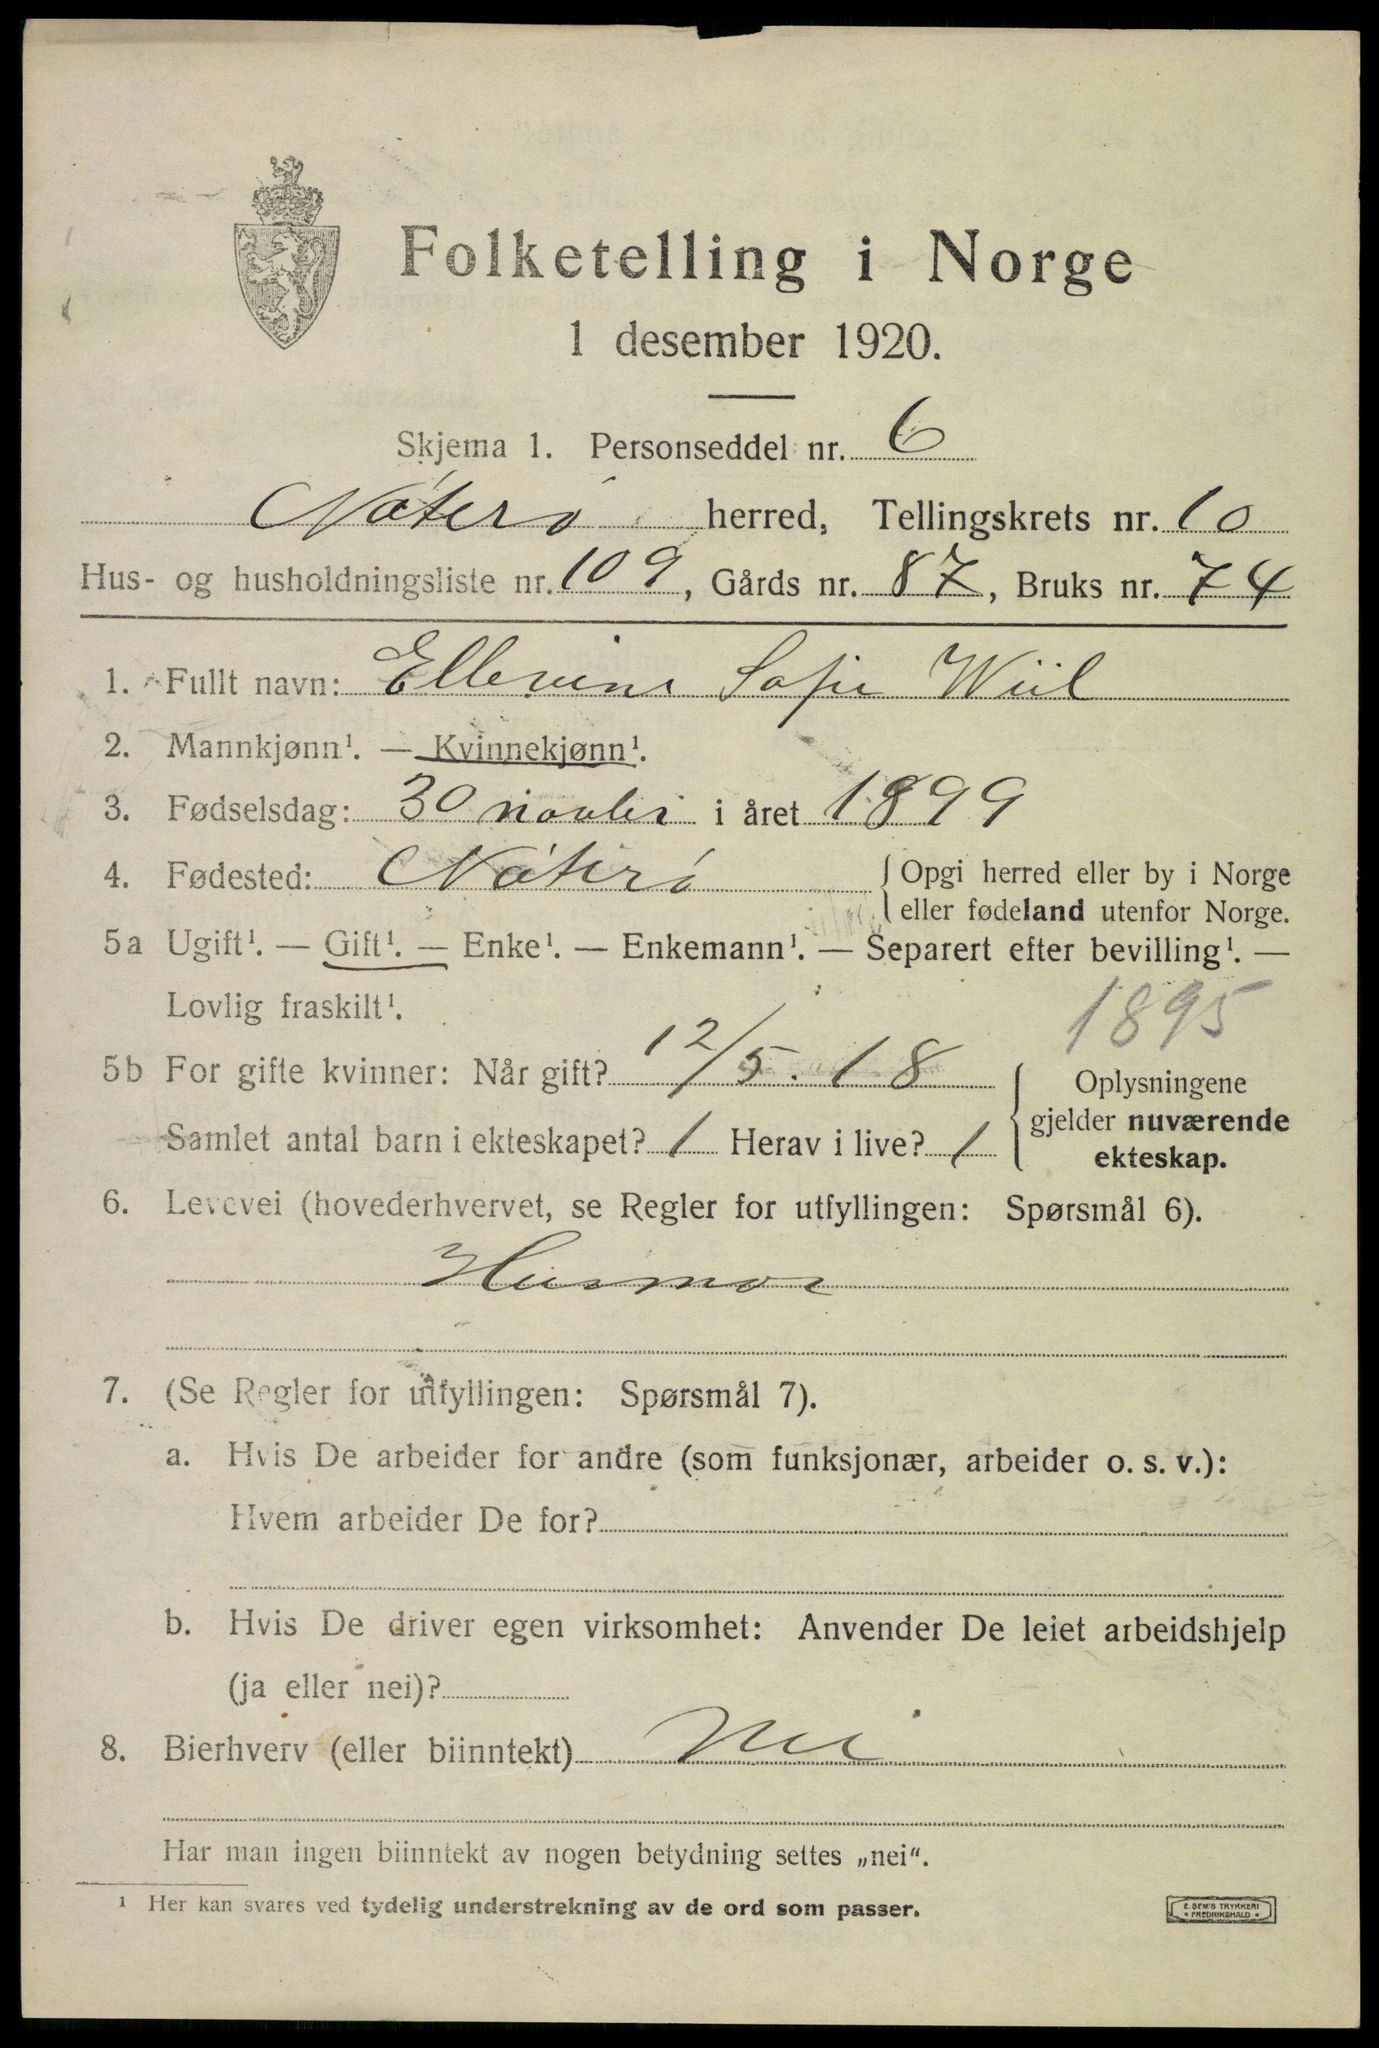 Folketelling i Norge
1 desember 1920.
Skjema 1. Personseddel nr. 6
Nøterø herred, Tellingskrets nr. 10
Hus- og husholdningsliste nr. 109, Gårds nr. 87, Bruks nr. 74
1. Fullt navn: Ellevine Sofie Wiil
2. Mannkjønn¹. — Kvinnekjønn¹.
3. Fødselsdag: 30 novbr i året 1899
4. Fødested: Nøterø { Opgi herred eller by i Norge
eller fødeland utenfor Norge.
5a Ugift¹. — Gift¹. — Enke¹. — Enkemann¹. — Separert efter bevilling¹. —
Lovlig fraskilt¹.
1895
5b For gifte kvinner: Når gift? 12/5. 18
Samlet antal barn i ekteskapet? 1 Herav i live? 1
{ Oplysningene
gjelder nuværende
ekteskap.
6. Levevei (hovederhvervet, se Regler for utfyllingen: Spørsmål 6).
Husmor
7. (Se Regler for utfyllingen: Spørsmål 7).
a. Hvis De arbeider for andre (som funksjonær, arbeider o. s. v.):
Hvem arbeider De for?
b. Hvis De driver egen virksomhet: Anvender De leiet arbeidshjelp
(ja eller nei)?
8. Bierhverv (eller biinntekt) Nei
Har man ingen biinntekt av nogen betydning settes „nei“.
¹ Her kan svares ved tydelig understrekning av de ord som passer.
E. SEM'S TRYKKERI
• FREDRIKSHALD •